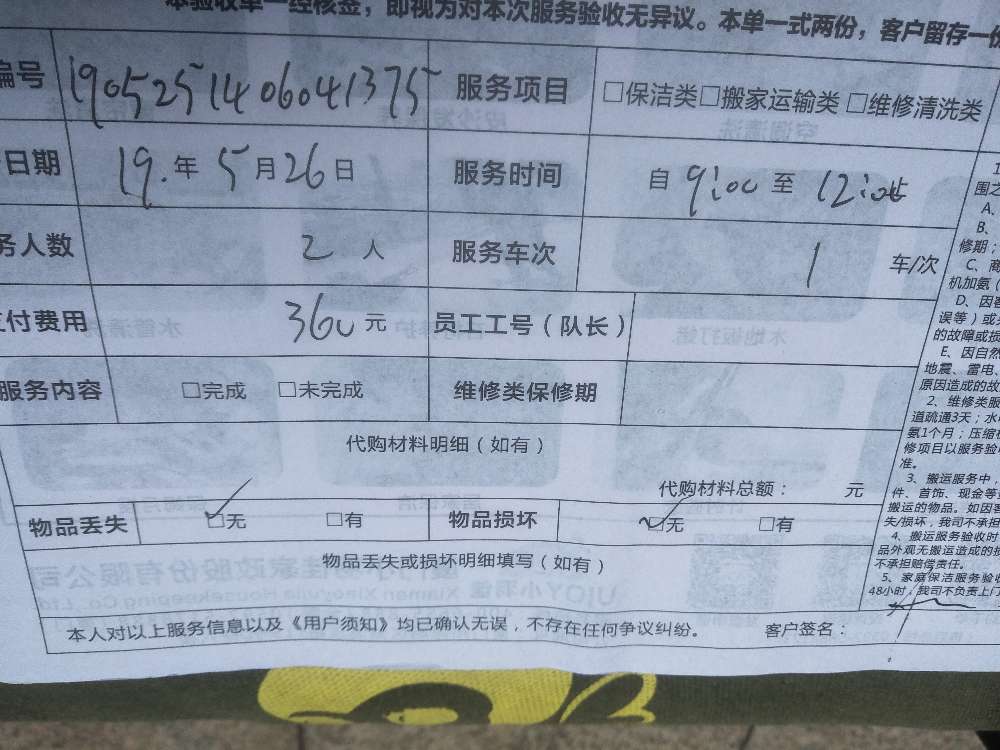 本验收单一经核签，即视为对本次服务验收无异议。本单一式两份，客户留存一份
编号 1905251406041375 服务项目 □保洁类□搬家运输类 □维修清洗类
日期 19.年 5月26日 服务时间 自 9:00 至 12:00
务人数 2 人 服务车次 1 车/次
付费用 360 元 员工工号（队长）
服务内容 □完成 □未完成 维修类保修期
代购材料明细（如有）
代购材料总额： 元
物品丢失 ☑无 □有 物品损坏 ☑无 □有
物品丢失或损坏明细填写（如有）
本人对以上服务信息以及《用户须知》均已确认无误，不存在任何争议纠纷。 客户签名：
1
围之
A、
B、
修期；
C、商
机加氨（
D、因客
误等）或
的故障或损
E、因自然
地震、雷电、
原因造成的故
2、维修类服
道疏通3天；水
氨1个月；压缩
修项目以服务验
准。
3、搬运服务中，
件、首饰、现金等
搬运的物品。如因客
失/损坏，我司不承担
4、搬运服务验收时
品外观无搬运造成的损
不承担赔偿责任。
5、家庭保洁服务验收
48小时，我司不负责上门